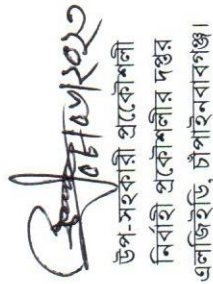 উপ-সহকারী প্রকৌশলী
নির্বাহী প্রকৌশলীর দপ্তর
এলজিইডি, চাঁপাইনবাবগঞ্জ।